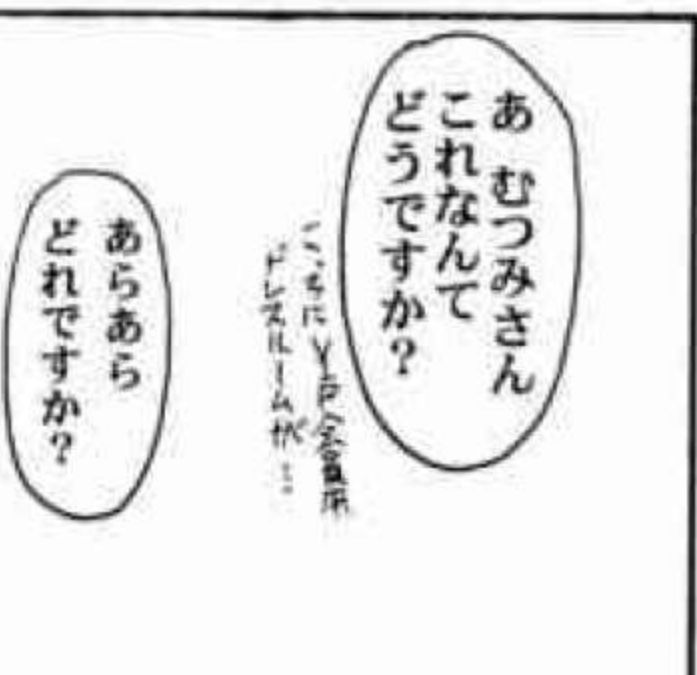 あ むつみさん
これなんて
どうですか?
こっちにVIP会員用
ドレスルームが…
あらあら
どれですか?